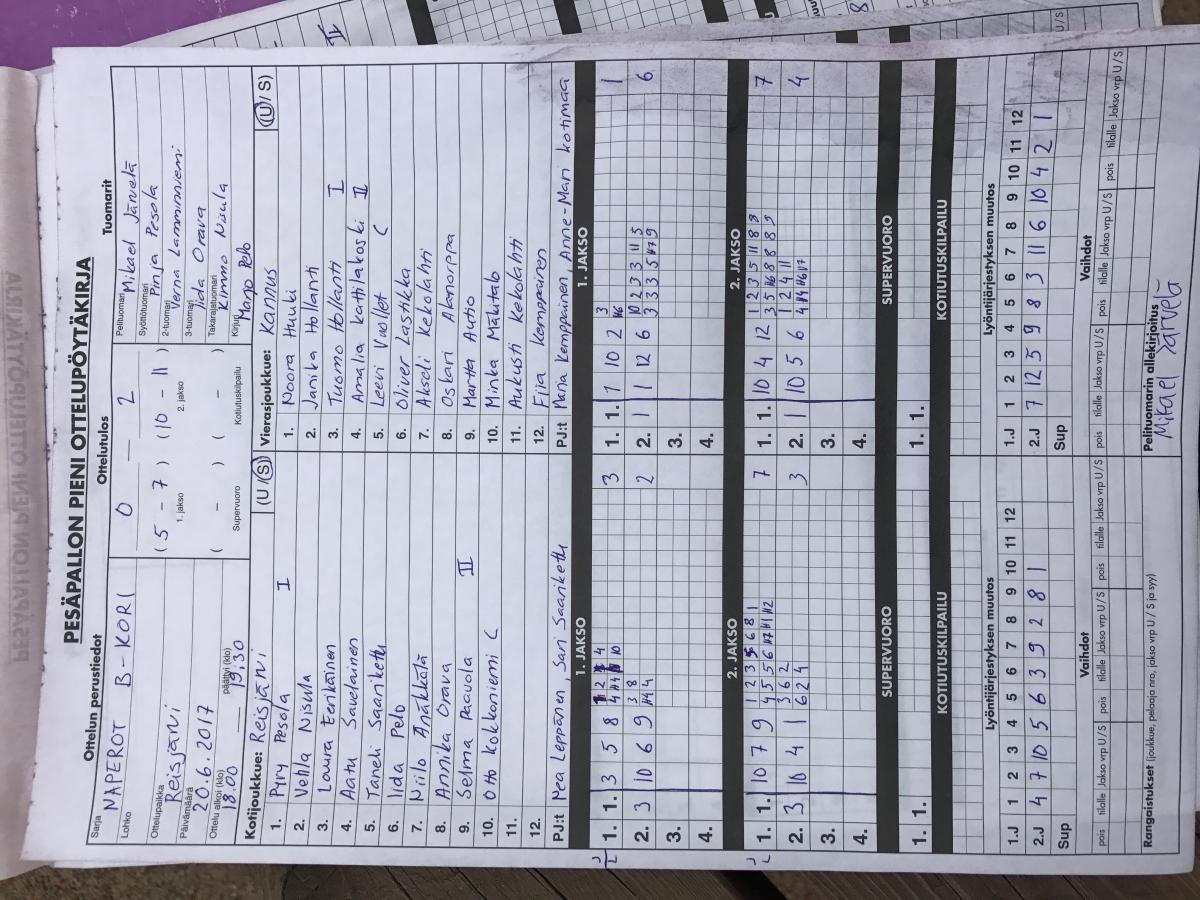 PESÄPALLON PIENI OTTELUPÖYTÄKIRJA
Ottelun perustiedot
Sarja
NAPEROT B-KORI
Lohko
Ottelupaikka
Reisjärvi
Päivämäärä
20.6.2017
Ottelu alkoi (klo) päättyi (klo)
18.00 19:30
Ottelutulos
0 — 2
( 5 - 7 ) ( 10 - 11 )
1. jakso 2. jakso
( - ) ( - )
Supervuoro Kotiutuskilpailu
Tuomarit
Pelituomari Mikael Järvelä
Syöttötuomari Pinja Pesola
2-tuomari Verna Lamminniemi
3-tuomari Iida Orava
Takarajatuomari Kimmo Nisula
Kirjuri Marjo Pelo
Kotijoukkue: Reisjärvi (U / S)
1. Pyry Pesola I
2. Vehla Nisula
3. Loura Eenkäinen
4. Aatu Savelainen
5. Taneli Saarikettu
6. Iida Pelo
7. Niilo Änäkkälä
8. Annika Orava
9. Selma Paavola II
10. Otto Kokkoniemi C
11.
12.
PJ:t Nea Leppänen, Sari Saarikettu
Vierasjoukkue: Kannus (U / S)
1. Noora Huuki
2. Janika Hollanti
3. Tuomo Hollanti I
4. Amalia Kattilakoski II
5. Leevi C
6. Oliver Lastikka
7. Akseli Kekolahti
8. Oskari Ahorppa
9. Martta Autio
10. Minka Mäkitalo
11. Aukusti Kekolahti
12. Fiia Kemppainen
PJ:t Maria Kemppainen, Anne-Mari Kotimaa
1. JAKSO
1. 1. 3 5 8 3
2. 3 10 6 9 2
3.
4.
1. JAKSO
1. 1. 1 10 2 1
2. 1 1 12 6 6
3.
4.
2. JAKSO
1. 1. 10 7 9 7
2. 3 10 4 1 3
3.
4.
2. JAKSO
1. 1. 10 4 12 7
2. 1 10 5 6 4
3.
4.
SUPERVUORO
1. 1.
SUPERVUORO
1. 1.
KOTIUTUSKILPAILU
KOTIUTUSKILPAILU
Lyöntijärjestyksen muutos
1.J 1 2 3 4 5 6 7 8 9 10 11 12
2.J 4 7 10 5 6 3 9 2 8 1
Sup
Lyöntijärjestyksen muutos
1.J 1 2 3 4 5 6 7 8 9 10 11 12
2.J 7 12 5 9 8 3 11 6 10 4 2 1
Sup
Vaihdot
pois tilalle Jakso vrp U / S pois tilalle Jakso vrp U / S pois tilalle Jakso vrp U / S
Vaihdot
pois tilalle Jakso vrp U / S pois tilalle Jakso vrp U / S pois tilalle Jakso vrp U / S
Rangaistukset (joukkue, pelaaja nro, jakso vrp U / S ja syy)
Pelituomarin allekirjoitus
Mikael Järvelä